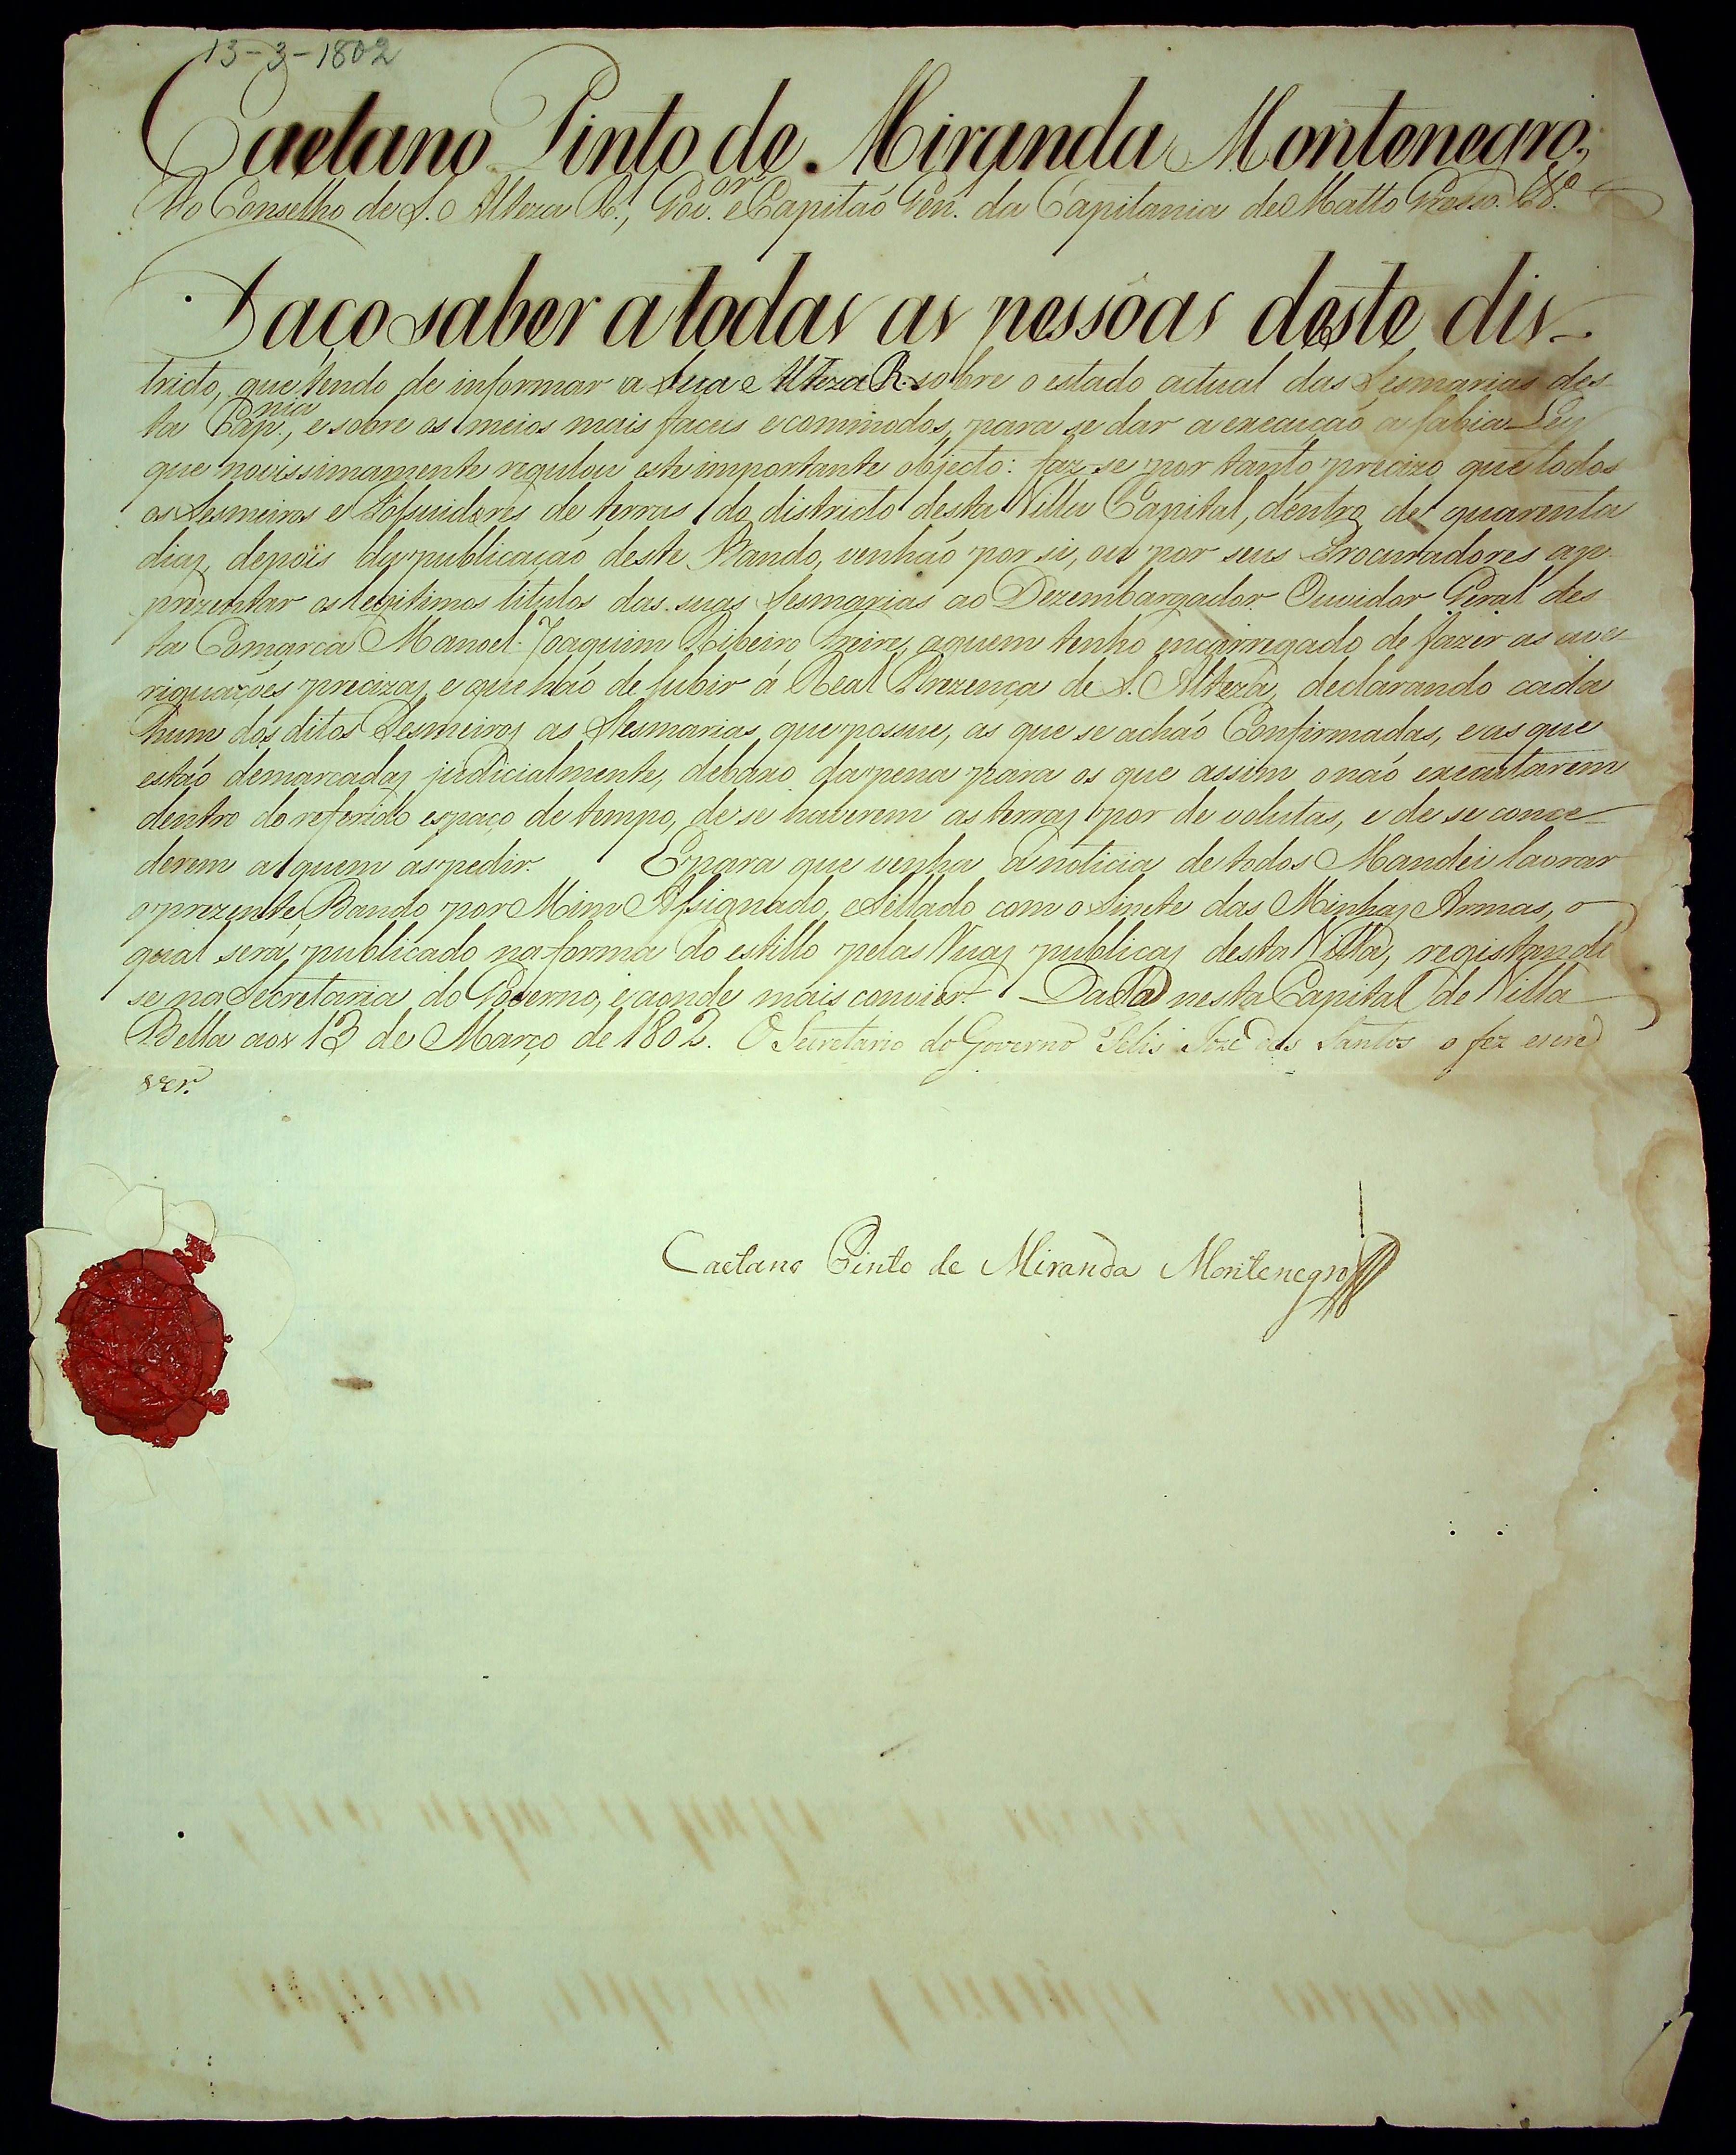 13-3-1802
Caetano Pinto de Miranda Montenegro,
Do Conselho de S. Alteza R.l, Gov.or e Capitaõ Gen. da Capitania de Matto Grosso. &.a
Faço saber a todas as pessôas deste dis-
tricto, que tendo de informar a Sua Alteza R. sobre o estado actual das Sesmarias des-
ta Cap.nia, e sobre os meios mais faceis e commodos, para se dar a execuçaõ a sabia Ley
que novissimamente regulou este importante objecto: faz-se por tanto precizo que todos
os Sesmeiros e Possuidores de terras do districto desta Villa Capital, dentro de quarenta
dias depois da publicaçaõ deste Bando, venhaõ por si, ou por seus Procuradores ap-
prezentar os legitimos titulos das suas Sesmarias ao Dezembargador Ouvidor Geral des-
ta Comarca Manoel Joaquim Ribeiro Freire, aquem tenho encarregado de fazer as ave-
riguações precizas, e que haõ de subir á Real Prezença de S. Alteza, declarando cada
hum dos ditos Sesmeiros as Sesmarias que possue, as que se achaõ Confirmadas, e as que
estaõ demarcadas judicialmente, debaxo da pena para os que assim o naõ executarem
dentro do referido espaço de tempo, de se haverem as terras por devolutas, e de se conce-
derem a quem as pedir. E para que venha á noticia de todos Mandei lavrar
o prezente Bando por Mim Assignado, e Sellado com o Sinete das Minhas Armas, o
qual será publicado na forma do estillo pelas Ruas publicas desta Villa, registando-
se na Secretaria do Governo, e aonde mais convier. Dado nesta Capital de Villa
Bella aos 13 de Março de 1802. O Secretario do Governo Felis Jozé dos Santos o fez escre
ver.
Caetano Pinto de Miranda Montenegro